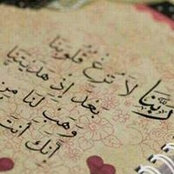 ربنا لَا تُزِغْ قُلُوبَنَا
بَعْدَ إِذْ هَدَيْتَنَا
وَهَبْ لَنَا مِنْ
أَنْتَ إِنَّكَ